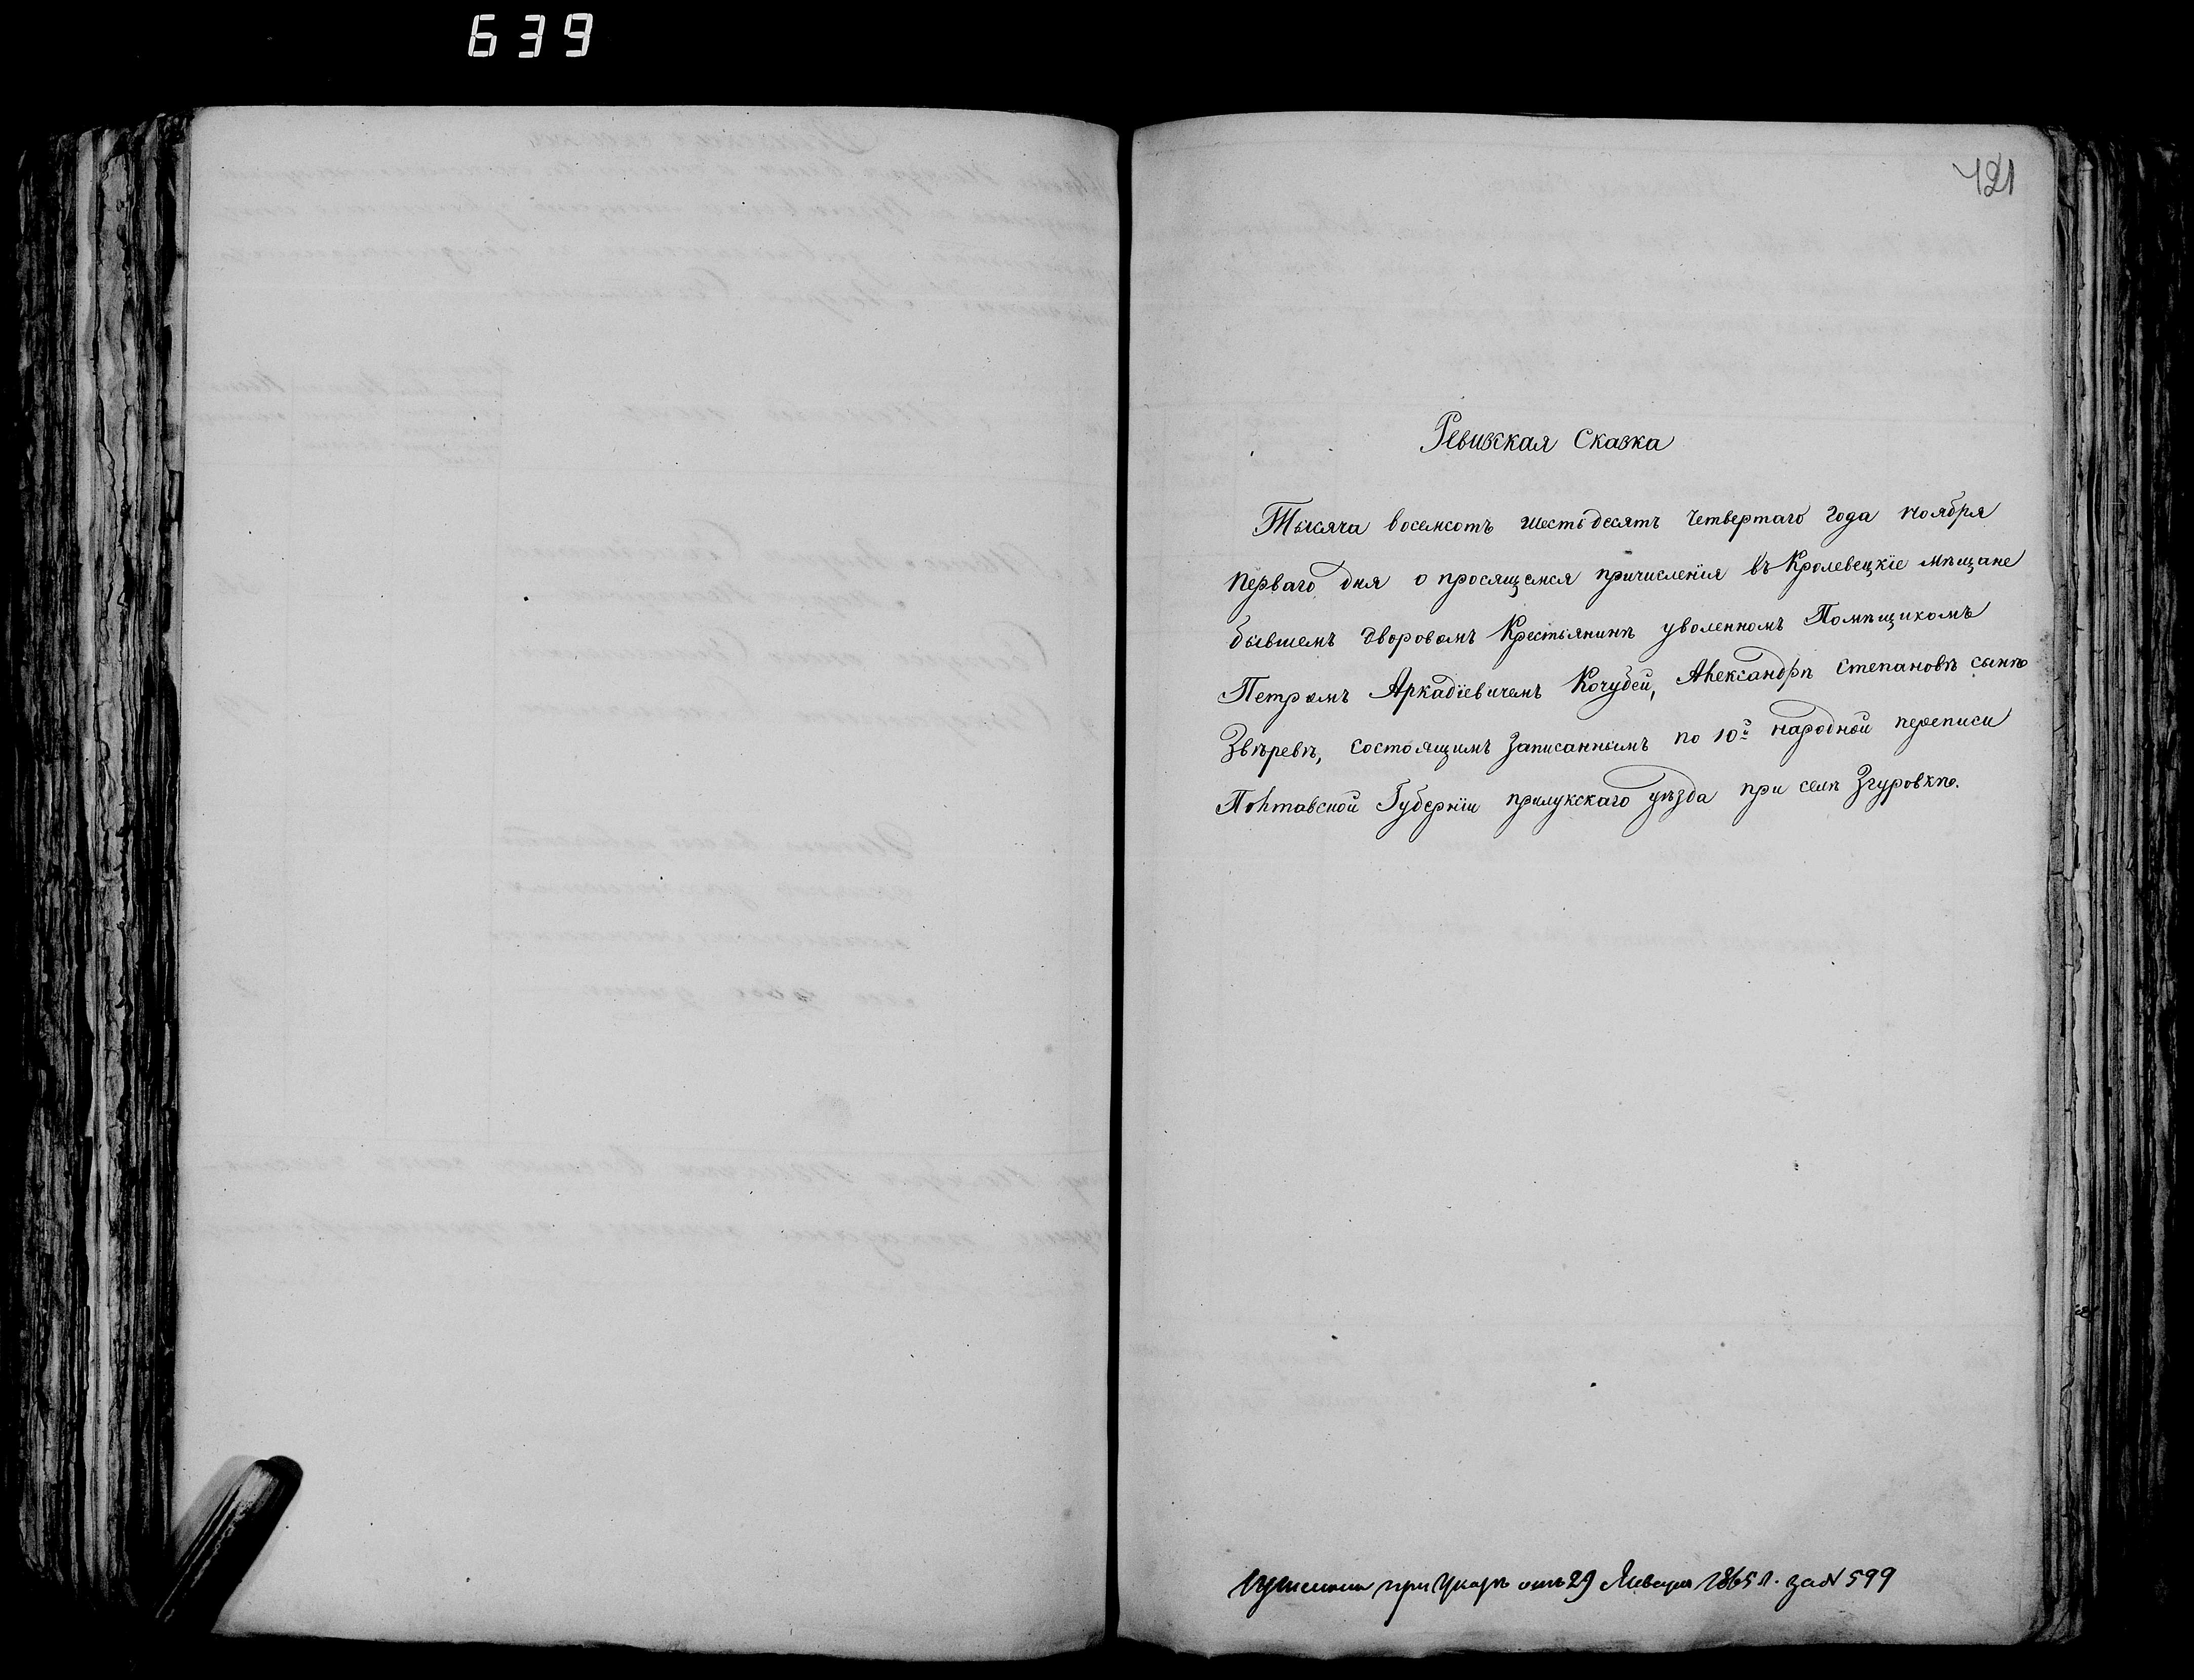 639
421
Ревизская Сказка
Тысяча восемсотъ шестьдесятъ четвертаго года ноября
перваго дня о просящемся причисленія въ Кролевецкіе мѣщане
бывшемъ дворовомъ Крестьянинѣ уволенномъ Помѣщикомъ
Петромъ Аркадіевичемъ Кочубей, Александрѣ Степановѣ сынѣ
Звѣревѣ, состоящимъ записаннымъ по 10й народной переписи
Полтавской Губерніи прилукскаго уѣзда при селѣ Згуровкѣ.
при Указѣ отъ 29 Января 1865 г. за N 599